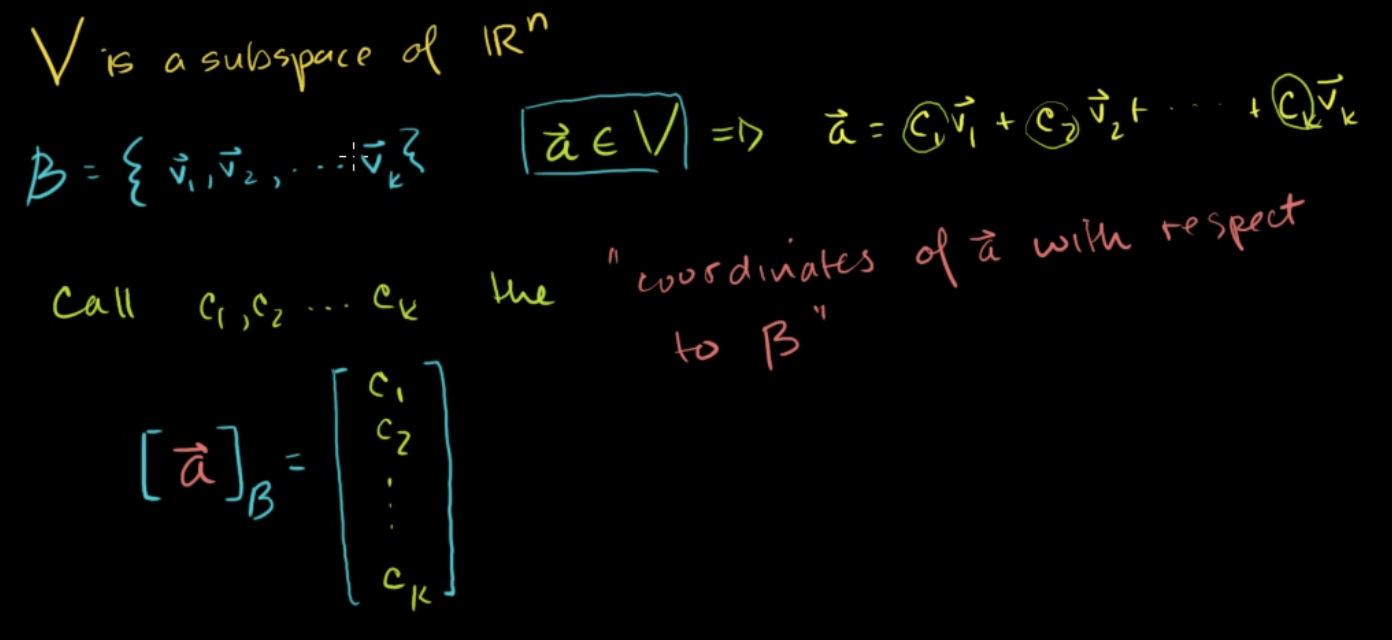 V is a subspace of ℝⁿ
B = { v⃗₁, v⃗₂, ... v⃗ₖ} a⃗ ∈ V ⇒ a⃗ = c₁v⃗₁ + c₂v⃗₂ + ...... + cₖv⃗ₖ
Call c₁, c₂ ... cₖ the "coordinates of a⃗ with respect
to B"
[a⃗]_B = [
c₁
c₂
⋮
cₖ
]